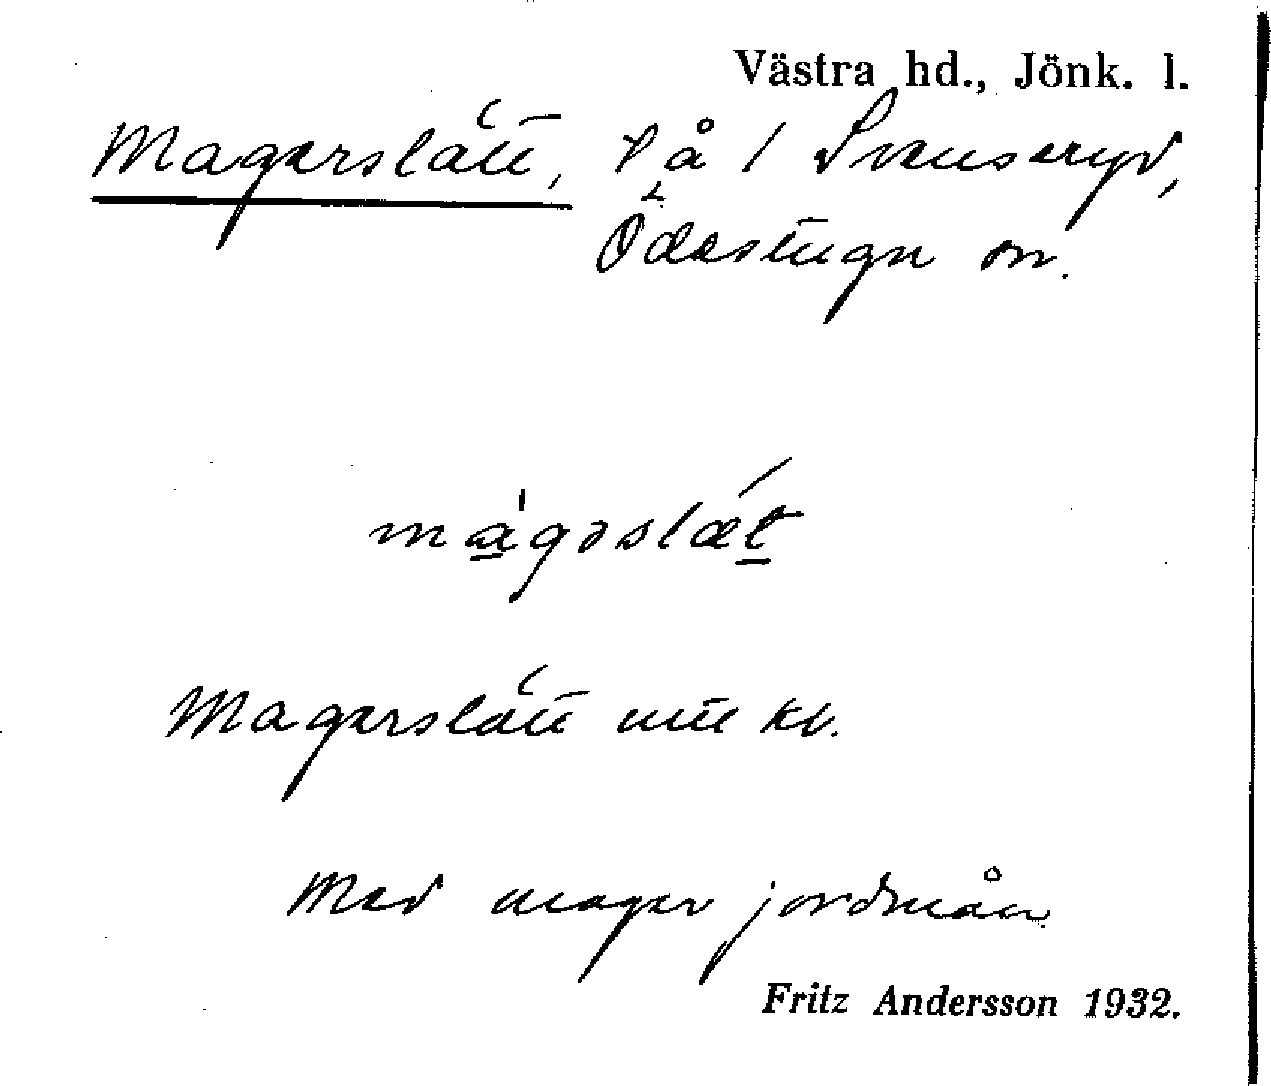 Västra hd., Jönk. l.
Magerslätt, på 1 Svenseryd,
Ödestugu sn.
màgəslæ̀t
Magerslätt utm kr.
Med mager jordmån
Fritz Andersson 1932.